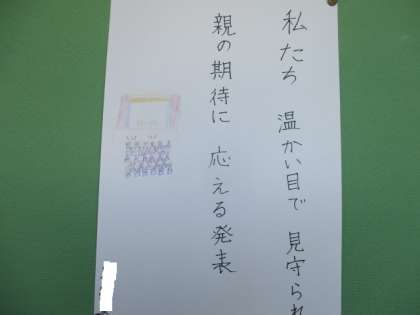 私たち 温かい目で 見守られ
親の期待に 応える発表